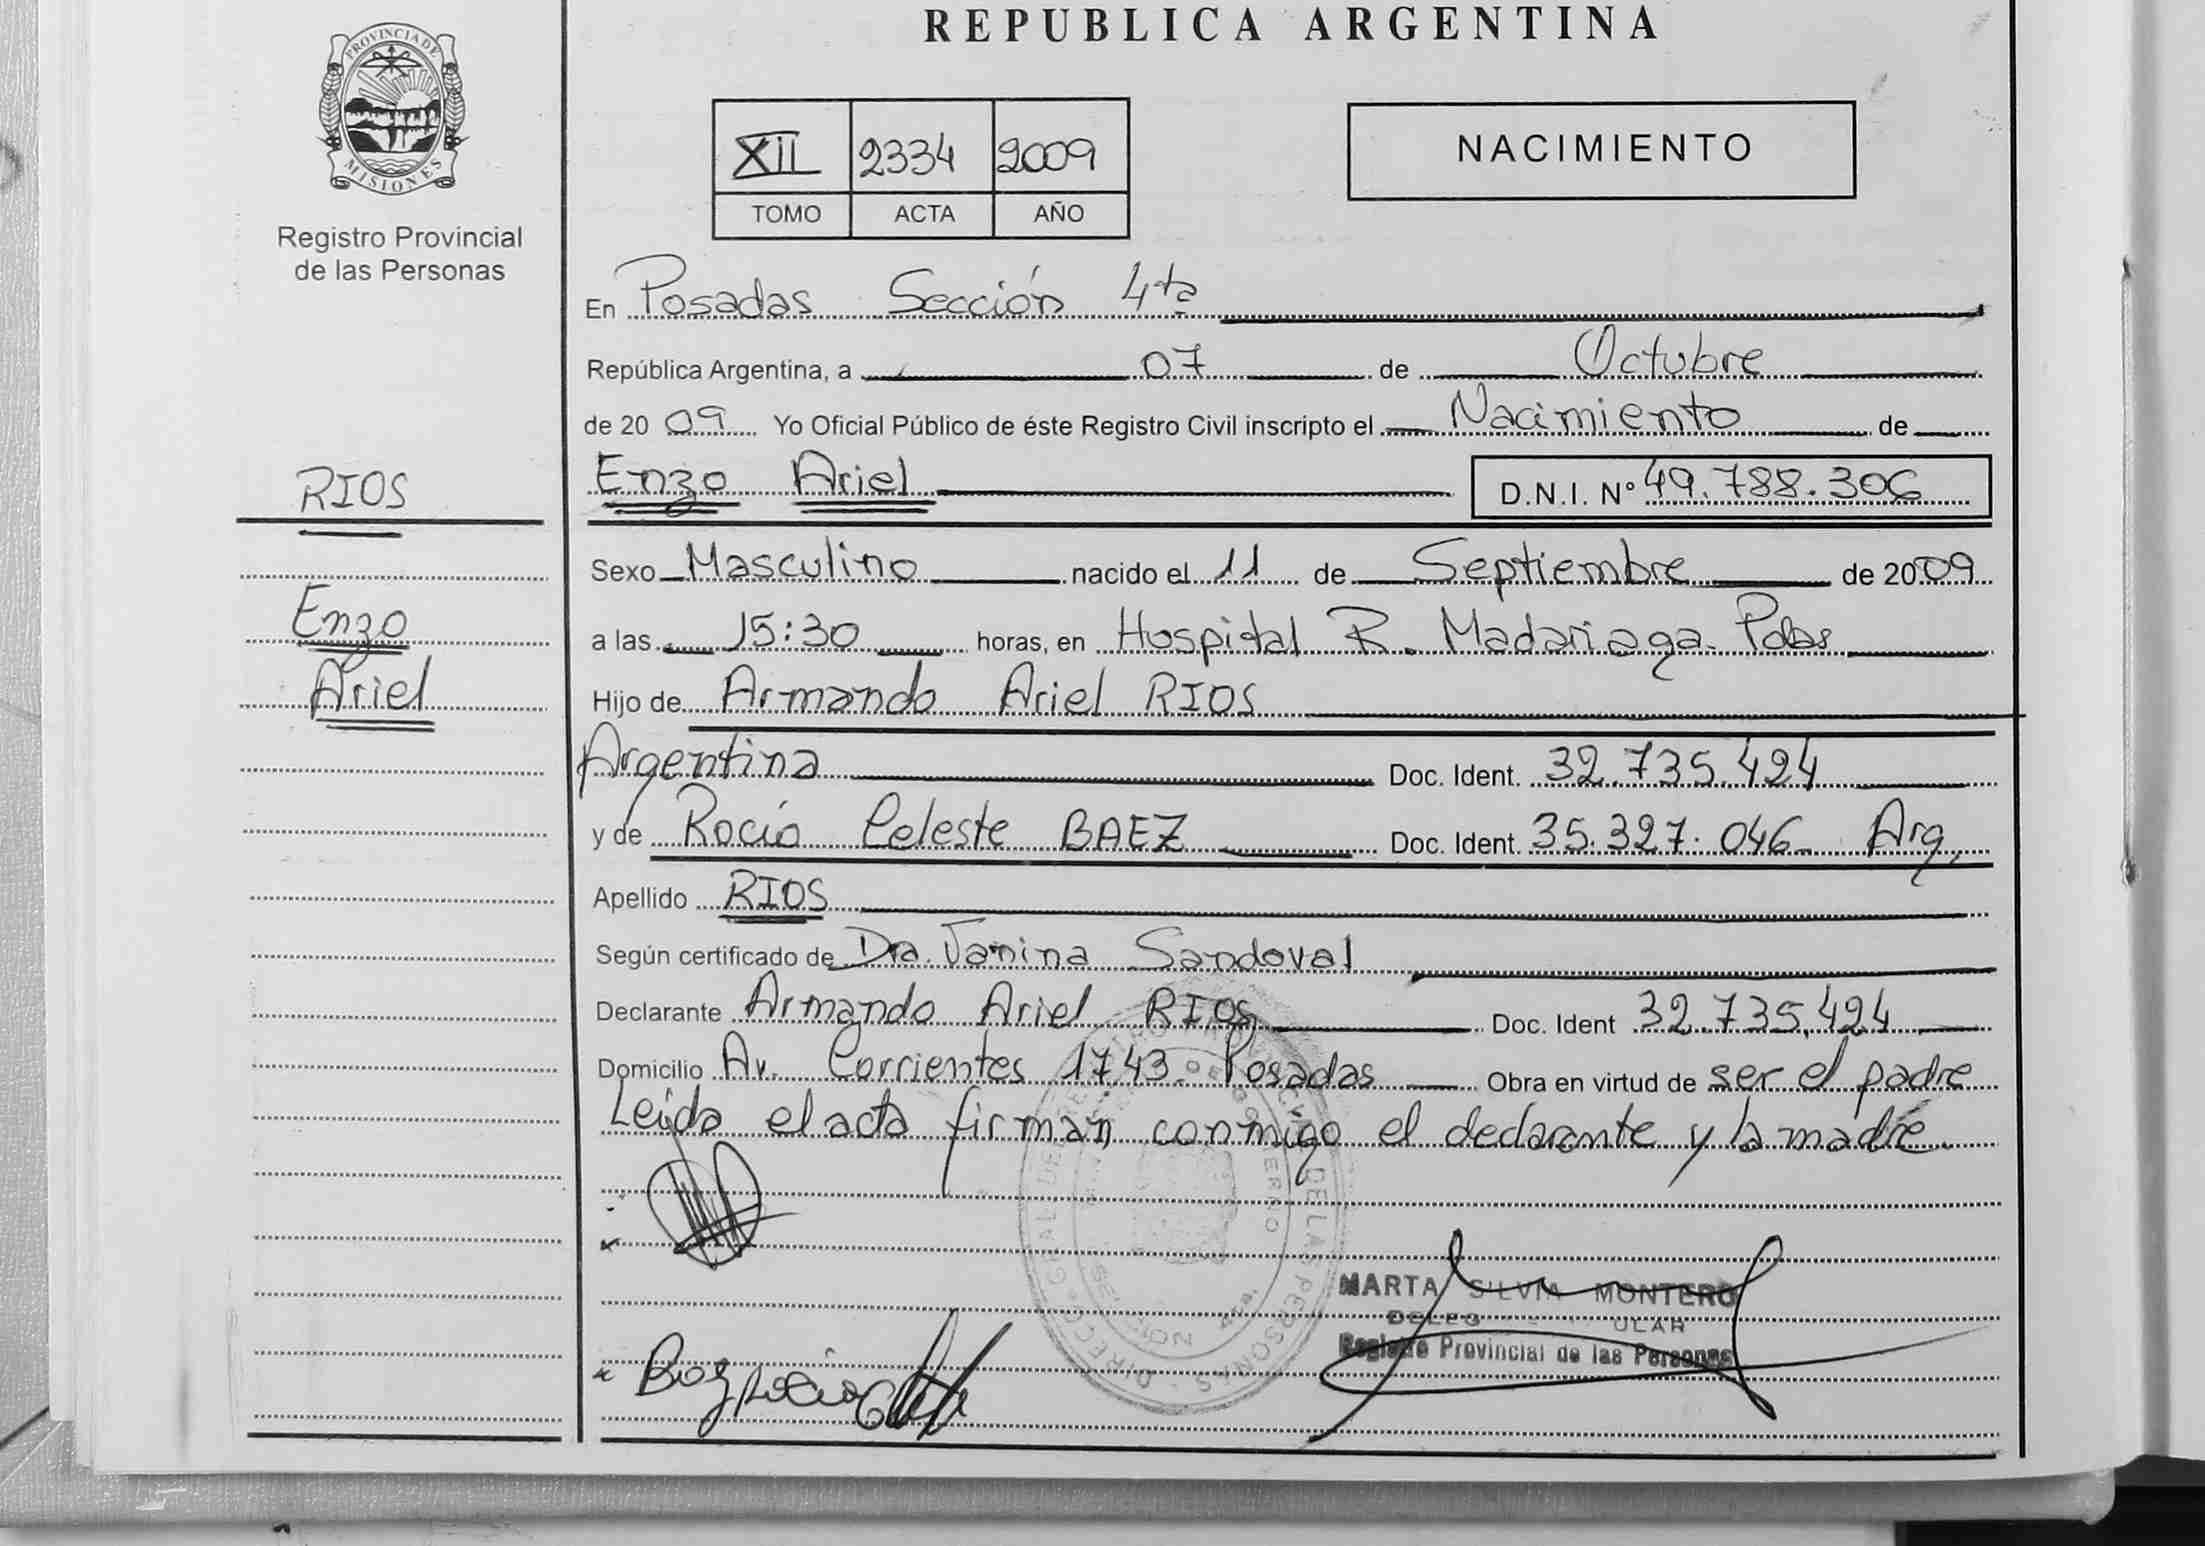 REPUBLICA ARGENTINA
PROVINCIA DE
MISIONES
Registro Provincial
de las Personas
XII 2334 2009
TOMO ACTA AÑO
NACIMIENTO
En Posadas Sección 4ta
República Argentina, a 07 de Octubre
de 20 09 Yo Oficial Público de éste Registro Civil inscripto el Nacimiento de
RIOS
Enzo Ariel D.N.I. Nº 49.788.306
Sexo Masculino nacido el 11 de Septiembre de 2009
Enzo
a las 15:30 horas, en Hospital R. Madariaga. Pdas
Ariel
Hijo de Armando Ariel RIOS
Argentina Doc. Ident. 32.735.424
y de Rocío Celeste BAEZ Doc. Ident. 35.327.046 Arg.
Apellido RIOS
Según certificado de Dra. Janina Sandoval
Declarante Armando Ariel RIOS Doc. Ident 32.735.424
Domicilio Av. Corrientes 1743. Posadas Obra en virtud de ser el padre
Leída el acta firman conmigo el declarante y la madre.
MARTA SILVIA MONTERO
Registro Provincial de las Personas